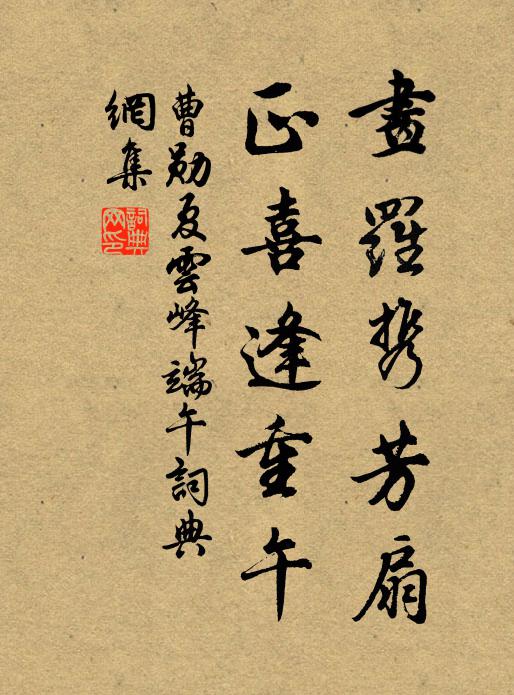 畫羅携芳扇
正喜逢重午
曹勛夏雲峰端午詞典
網集
詞典網印